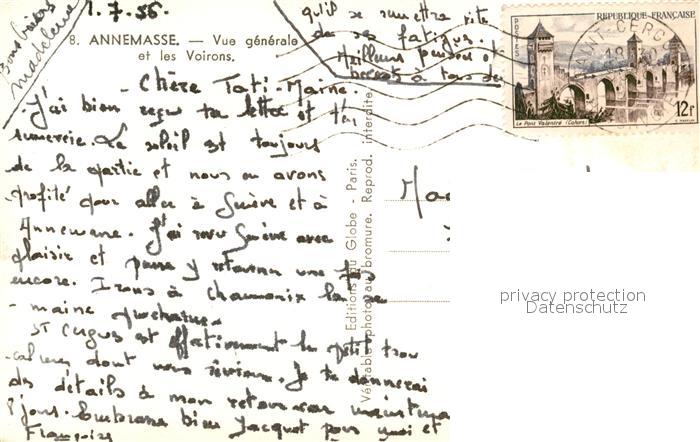 1.7.56.
8. ANNEMASSE. — Vue générale
et les Voirons.
bons baisers
madeleine
qu'il se remettra vite
de sa fatigue.
Meilleures pensées et
baisers à tous deux
RÉPUBLIQUE FRANÇAISE
POSTES
Le Pont Valentré (Cahors)
12F
Chère Tati-Maine.
J'ai bien reçu ta lettre et t'en
remercie. Le soleil est toujours
de la partie et nous en avons
profité pour aller à Genève et à
Annemasse. J'ai revu Genève avec
plaisir et pense y retourner une fois
encore. Irons à Chamonix la se
-maine prochaine.
St Cergues est effectivement le petit trou
calme dont nous rêvions. Je te donnerai
des détails à mon retour car maintenant
8 jours. Embrasse bien Jacquot pour moi et
Françoise
Editions du Globe - Paris.
Véritable photo au bromure. Reprod. interdite.
Mad
privacy protection
Datenschutz